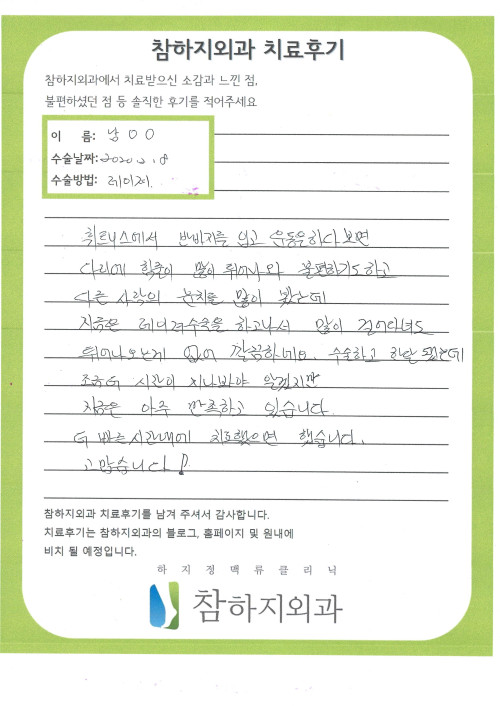 참하지외과 치료후기
참하지외과에서 치료받으신 소감과 느낀 점,
불편하셨던 점 등 솔직한 후기를 적어주세요
이 름: 남OO
수술날짜: 2020.2.8
수술방법: 레이저.
휘트니스에서 반바지를 입고 운동을하다 보면
다리에 힘줄이 많이 튀어나와 불편하기도하고
다른 사람의 눈치를 많이 봤는데
지금은 레이저수술을 하고나서 많이 걸어다녀도
튀어나오는게 없어 깔끔하네요. 수술하고 한달 됐는데
조금더 시간이 지나봐야 알겠지만
지금은 아주 만족하고 있습니다.
더 빠른시간내에 치료했으면 했습니다.
고맙습니다!
참하지외과 치료후기를 남겨 주셔서 감사합니다.
치료후기는 참하지외과의 블로그, 홈페이지 및 원내에
비치 될 예정입니다.
하지정맥류클리닉
참하지외과